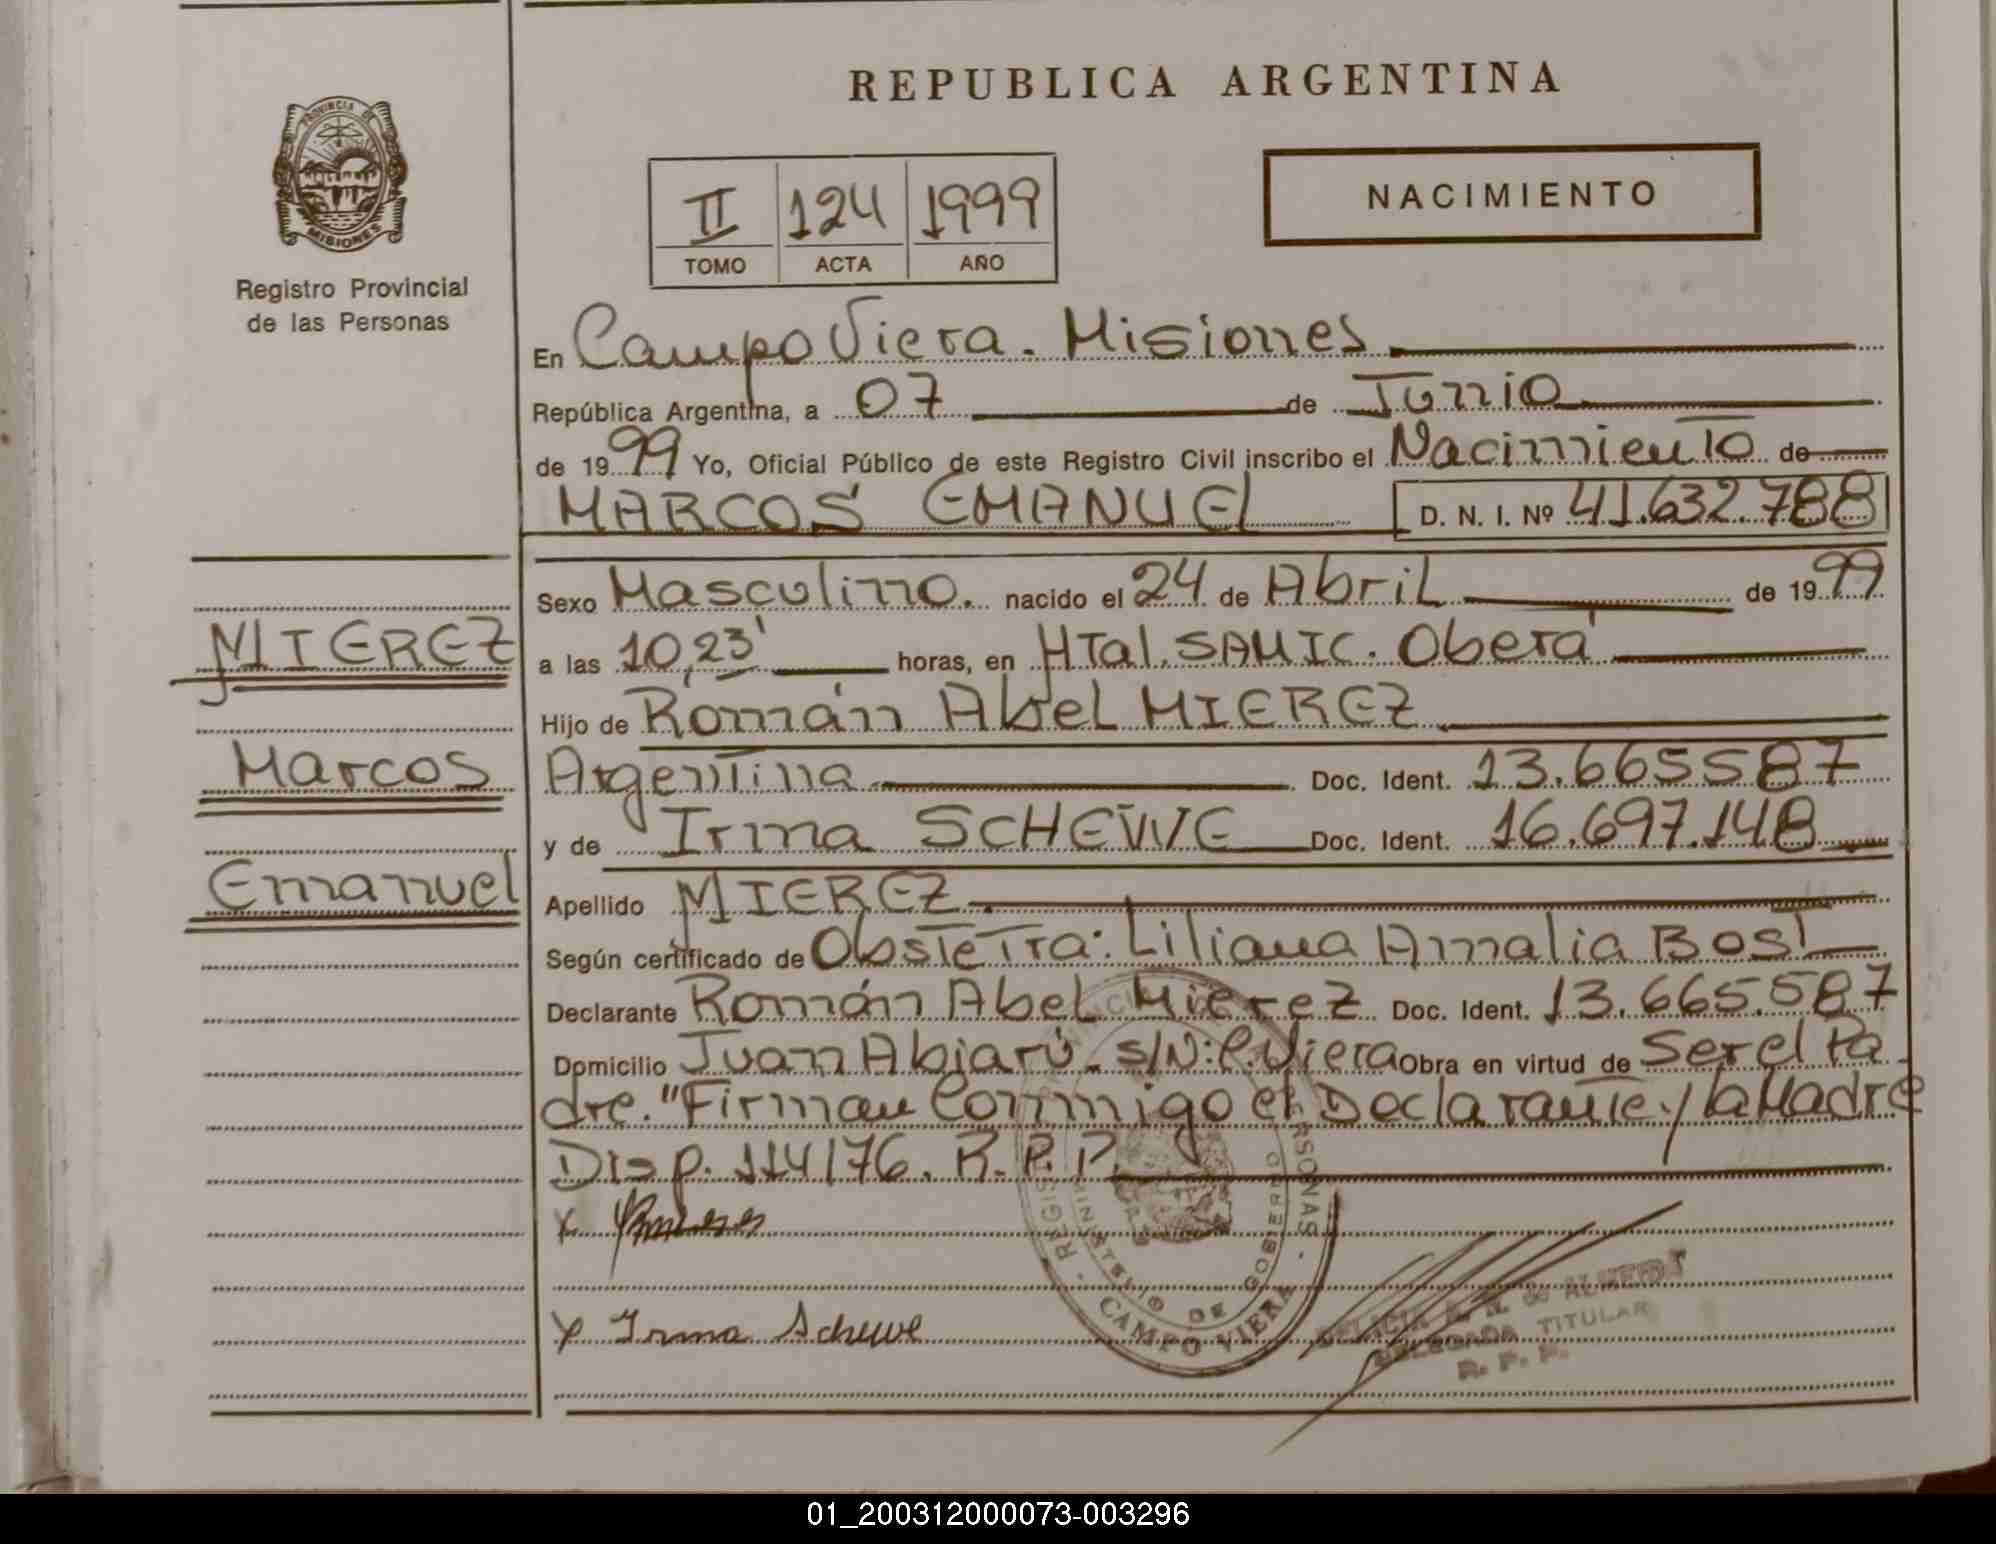 REPUBLICA ARGENTINA
PROVINCIA DE
MISIONES
Registro Provincial
de las Personas
II 124 1999
TOMO ACTA AÑO
NACIMIENTO
En Campo Viera. Misiones
República Argentina, a 07 de Junio
de 1999 Yo, Oficial Público de este Registro Civil inscribo el Nacimiento de
MARCOS EMANUEL D. N. I. Nº 41.632.788
Sexo Masculino. nacido el 24 de Abril de 1999
MIEREZ
a las 10,23' horas, en HTal. SAMIC. Oberá
Hijo de Román Abel MIEREZ
Marcos
Argentina Doc. Ident. 13.665587
y de Irma SCHEWE Doc. Ident. 16.697.148
Emanuel
Apellido MIEREZ
Según certificado de Obstetra: Liliana Amalia Bost
Declarante Román Abel Mierez Doc. Ident. 13.665.587
Domicilio Juan Abiarú. S/N: C. Viera Obra en virtud de Ser el Pa
dre. "Firman Conmigo el Declarante y la Madre
Disp. 114/76. R.P.P.
X
X Irma Schewe
CAMPO VIERA
DE ALMEIDA
DELEGADA TITULAR
R. P. P.
01_200312000073-003296